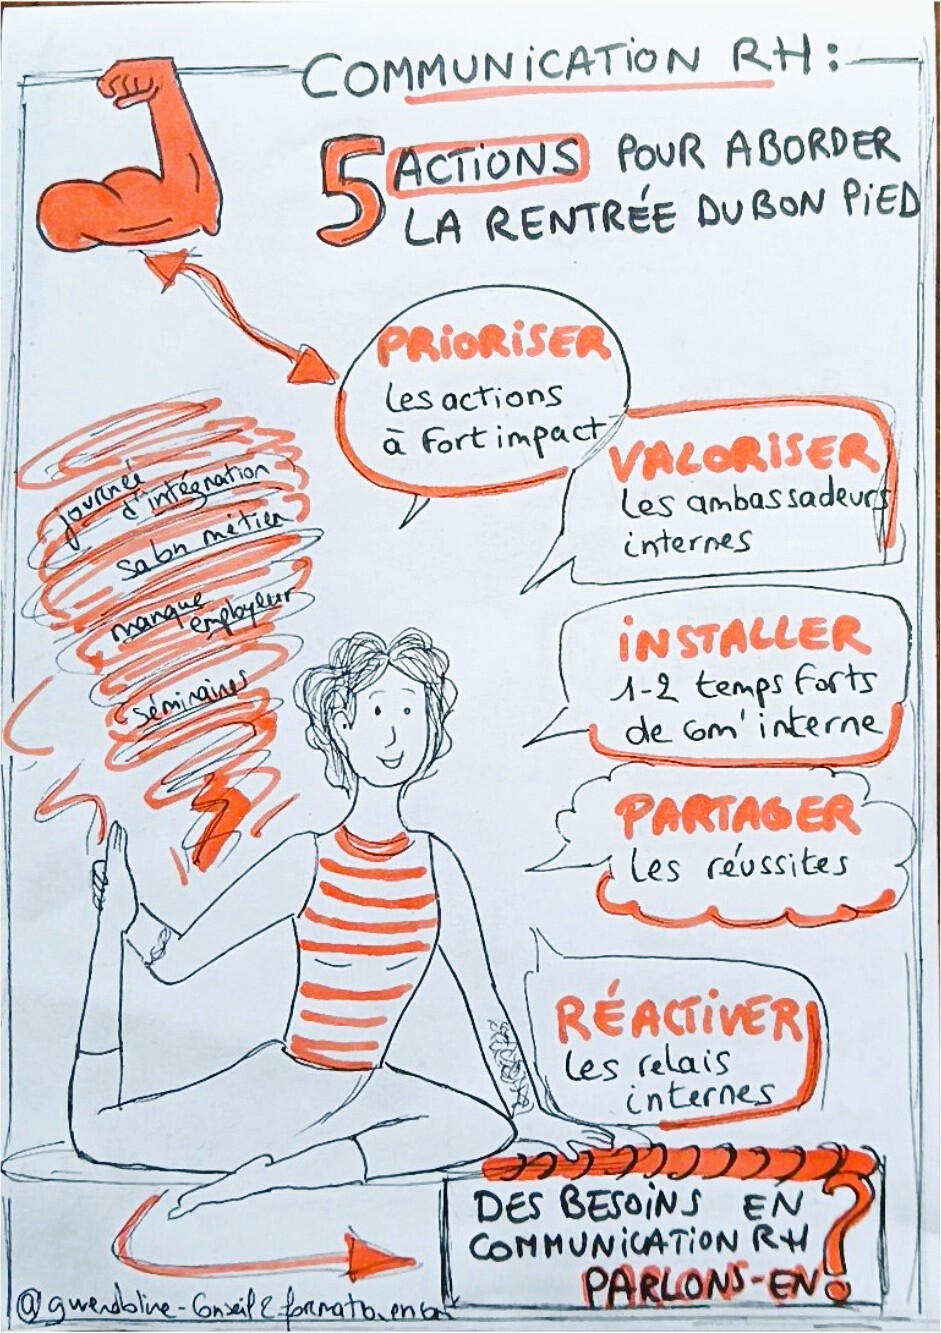 COMMUNICATION RH:
5 ACTIONS POUR ABORDER
LA RENTRÉE DU BON PIED
PRIORISER
les actions
à fort impact
VALORISER
les ambassadeurs
internes
journée
d'intégration
salon métier
marque
employeur
séminaires
INSTALLER
1-2 temps forts
de com' interne
PARTAGER
les réussites
RÉACTIVER
les relais
internes
DES BESOINS EN
COMMUNICATION RH
PARLONS-EN ?